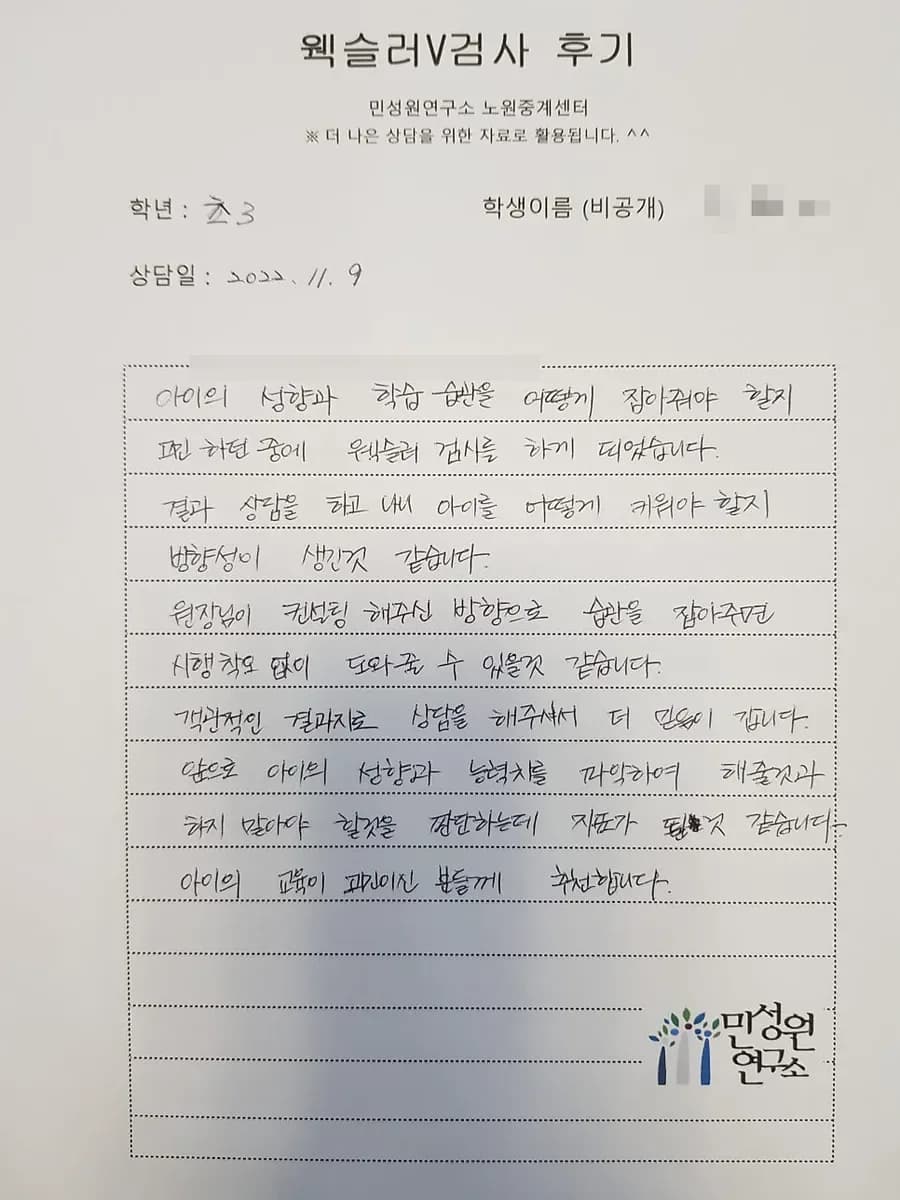 웩슬러V검사 후기
민성원연구소 노원중계센터
※ 더 나은 상담을 위한 자료로 활용됩니다. ^^
학년 : 초3
학생이름 (비공개)
상담일 : 2022. 11. 9
아이의 성향과 학습 습관을 어떻게 잡아줘야 할지
고민 하던 중에 웩슬러 검사를 하게 되었습니다.
결과 상담을 하고 내 아이를 어떻게 키워야 할지
방향성이 생긴것 같습니다.
원장님이 컨설팅 해주신 방향으로 습관을 잡아주면
시행착오 없이 도와줄 수 있을것 같습니다.
객관적인 결과지로 상담을 해주셔서 더 믿음이 갑니다.
앞으로 아이의 성향과 능력치를 파악하여 해줄것과
하지 말아야 할것을 판단하는데 지표가 될것 같습니다.
아이의 교육이 고민이신 분들께 추천합니다.
민성원
연구소